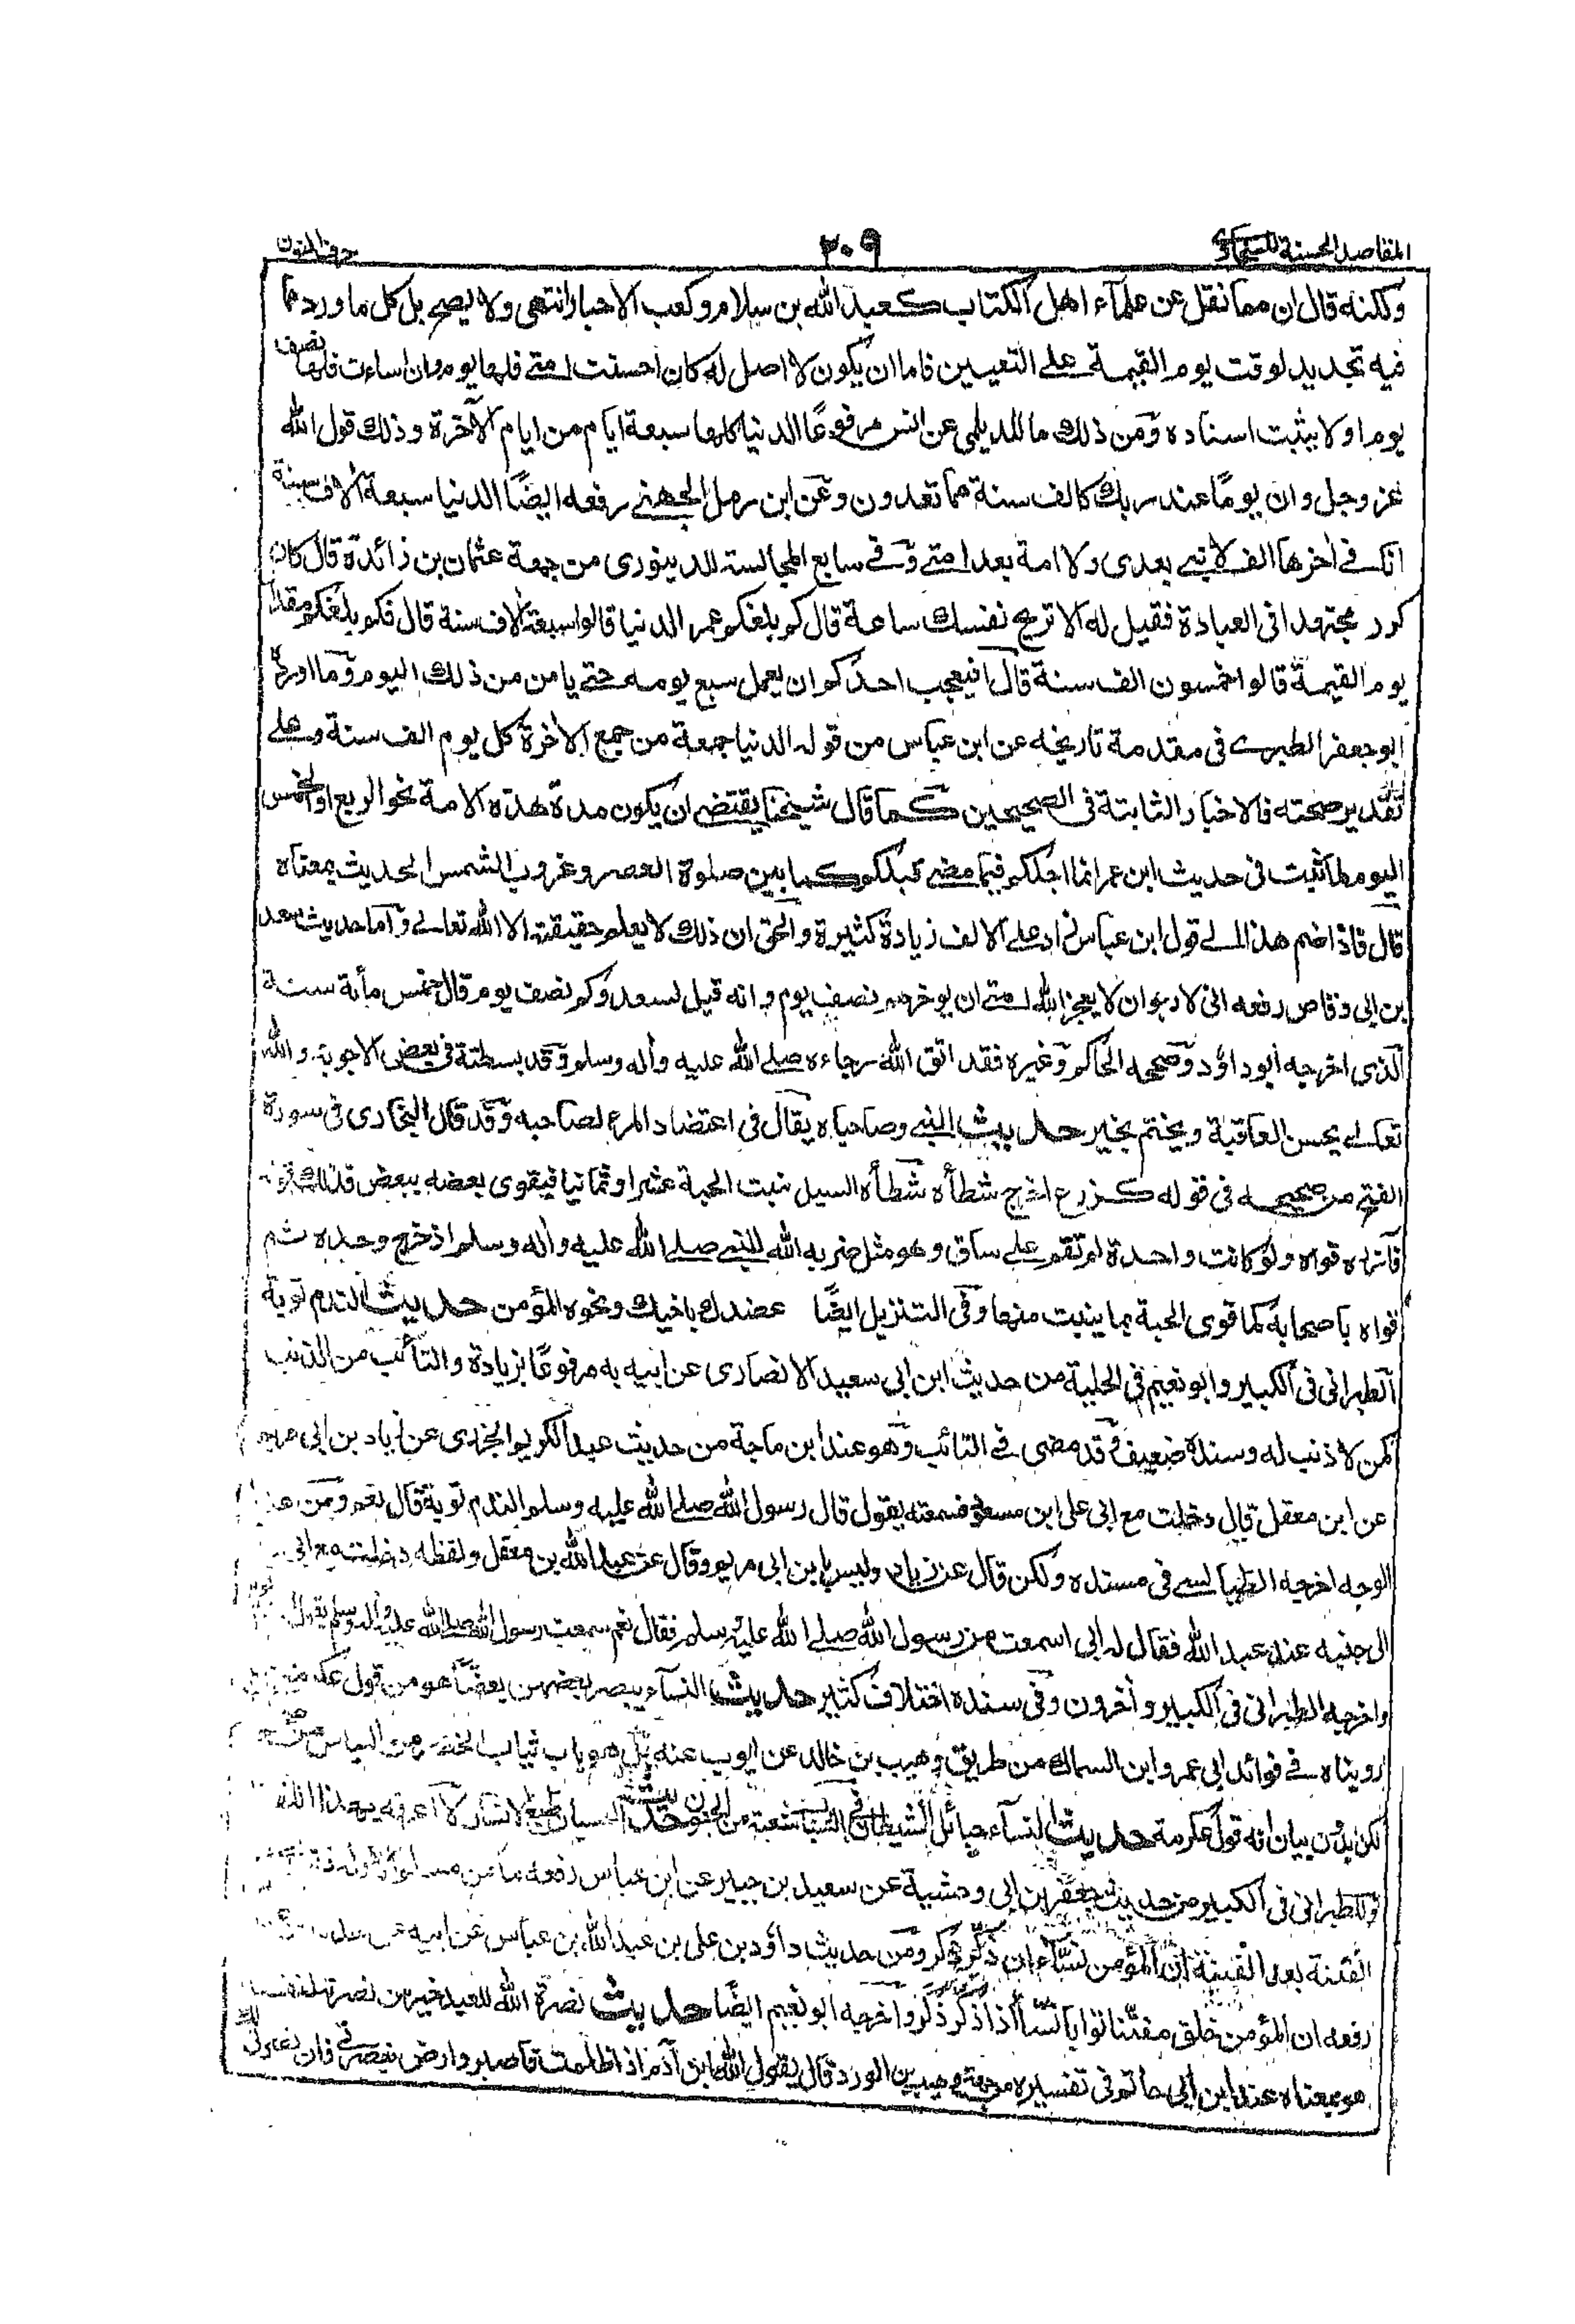 المقاصد الحسنة للسخاوی ٢٠٩ حرف النون
ولكنه قال ان مما نقل عن علمآء اهل الكتاب كعبد الله بن سلام وكعب الاحبار انتهى ولا يصح بل كل ما ورد مما
فيه تحديد لوقت يوم القيمة على التعيين فاما ان يكون لا اصل له كان احسنت امتے فلها يوم وان اساءت فلها نصف
يوم او لا يثبت اسناده ومن ذلك ما للديلمى عن انس مرفوعًا الدنيا كلها سبعة ايام من ايام الآخرة وذلك قول الله
عز وجل وان يومًا عند ربك كالف سنة مما تعدون وعن ابن رمل الجهنے رفعه ايضًا الدنيا سبعة الاف سنة
انا فے اخرها الفا لا نبے بعدى ولا امة بعد امتے وفے سابع المجالسة للدينورى من جهة عثمان بن زائدة قال كان
كرز مجتهدا فى العبادة فقيل له الا تريح نفسك ساعة قال كم بلغكم عمر الدنيا قالوا سبعة الاف سنة قال فكم بلغكم مقدار
يوم القيمة قالوا خمسون الف سنة قال افيعجب احدكم ان يعمل سبع يومه حتے يامن من ذلك اليوم وما اورده
ابو جعفر الطبرے فى مقدمة تاريخه عن ابن عباس من قوله الدنيا جمعة من جمع الاخرة كل يوم الف سنة وعلى
تقدير صحته فالاخبار الثابتة فى الصحيحين كما قال شيخنا يقتضے ان يكون مدة هذه الامة نحو الربع او الخمس
اليوم لما ثبت فى حديث ابن عمر انما اجلكم فيما مضے قبلكم كما بين صلوة العصر وغروب الشمس الحديث بمعناه
قال فاذا ضم هذا الے قول ابن عباس زاد على الالف زيادة كثيرة والحق ان ذلك لا يعلم حقيقته الا الله تعالے واما حديث سعد
بن ابى وقاص رفعه انى لارجو ان لا يعجز الله امتے ان يوخرهم نصف يوم وانه قيل لسعد وكم نصف يوم قال خمس مأئة سنة
الذى اخرجه ابو داؤد وصححه الحاكم وغيره فقد اتق الله رجاءه صلے الله عليه واله وسلم وقد بسطته فى بعض الاجوبة والله
تعالے يحسن العاقبة ويختم بخير حديث النبے وصاحباه يقال فى اعتضاد المرء لصاحبه وقد قال البخارى فى سورة
الفتح من صحيحه فى قوله كزرع اخرج شطأه شطأه السيل نبت الحبة عشرا وثمانيا فيقوى بعضه ببعض فذلك قوله
فآزره قواه ولو كانت واحدة لم تقم على ساق وهو مثل ضربه الله للنبے صلے الله عليه واله وسلم اذ خرج وحده ثم
قواه باصحابه كما قوى الحبة بما ينبت منها وفى التنزيل ايضًا عضدك باخيك ونحوه المؤمن حديث الندم توبة
الطبرانى فى الكبير وابو نعيم فى الحلية من حديث ابن ابى سعيد الانصارى عن ابيه به مرفوعًا بزيادة والتائب من الذنب
كمن لا ذنب له وسنده ضعيف وقد مضى فے التائب وهو عند ابن ماجة من حديث عبد الكريم الجزرى عن زياد بن ابى مريم
عن ابن معقل قال دخلت مع ابى على ابن مسعود فسمعته يقول قال رسول الله صلے الله عليه وسلم الندم توبة قال نعم ومن هذا
الوجه اخرجه الطيالسے فى مسنده ولكن قال عن زياد وليس بابن ابى مريم وقال عن عبد الله بن معقل ولفظه دخلت مع ابى
الى جنبه عند عبد الله فقال له ابى اسمعت من رسول الله صلے الله عليه وسلم فقال نعم سمعت رسول الله صلے الله عليه واله وسلم يقول
واخرجه الطبرانى فى الكبير وأخرون وفى سنده اختلاف كثير حديث النسآء ينصر بعضهن بعضًا هو من قول عكرمة
رويناه فے فوائد ابى عمرو ابن السماك من طريق وهيب بن خالد عن ايوب عنه بل هو باب ثياب الخضر من اللباس من
لكن بدون بيان انه قول عكرمة حديث النسآء حبائل الشيطان فى الشباب شعبة من الجنون حديث النسيان طبع الانسان لا اعرفه بهذا اللفظ
وللطبرانى فى الكبير من حديث جعفر بن ابى وحشية عن سعيد بن جبير عن ابن عباس رفعه ما من مسلم الا وله ذنب
الفينة بعد الفينة ان المؤمن نسّآء ان ذُكّر ذكر ومن حديث داؤد بن على بن عبد الله بن عباس عن ابيه عن جده
رفعه ان المؤمن خلق مفتنا توابا نسّآا اذا ذُكّر ذكر واخرجه ابو نعيم ايضًا حديث نصرة الله للعبد خير من نصرته لنفسه
هو بمعناه عند ابن ابى حاتم فى تفسيره من جهة وهيب بن الورد قال يقول الله ابن آدم اذا ظلمت فاصبر وارض بنصرتے فان نصرتى لك